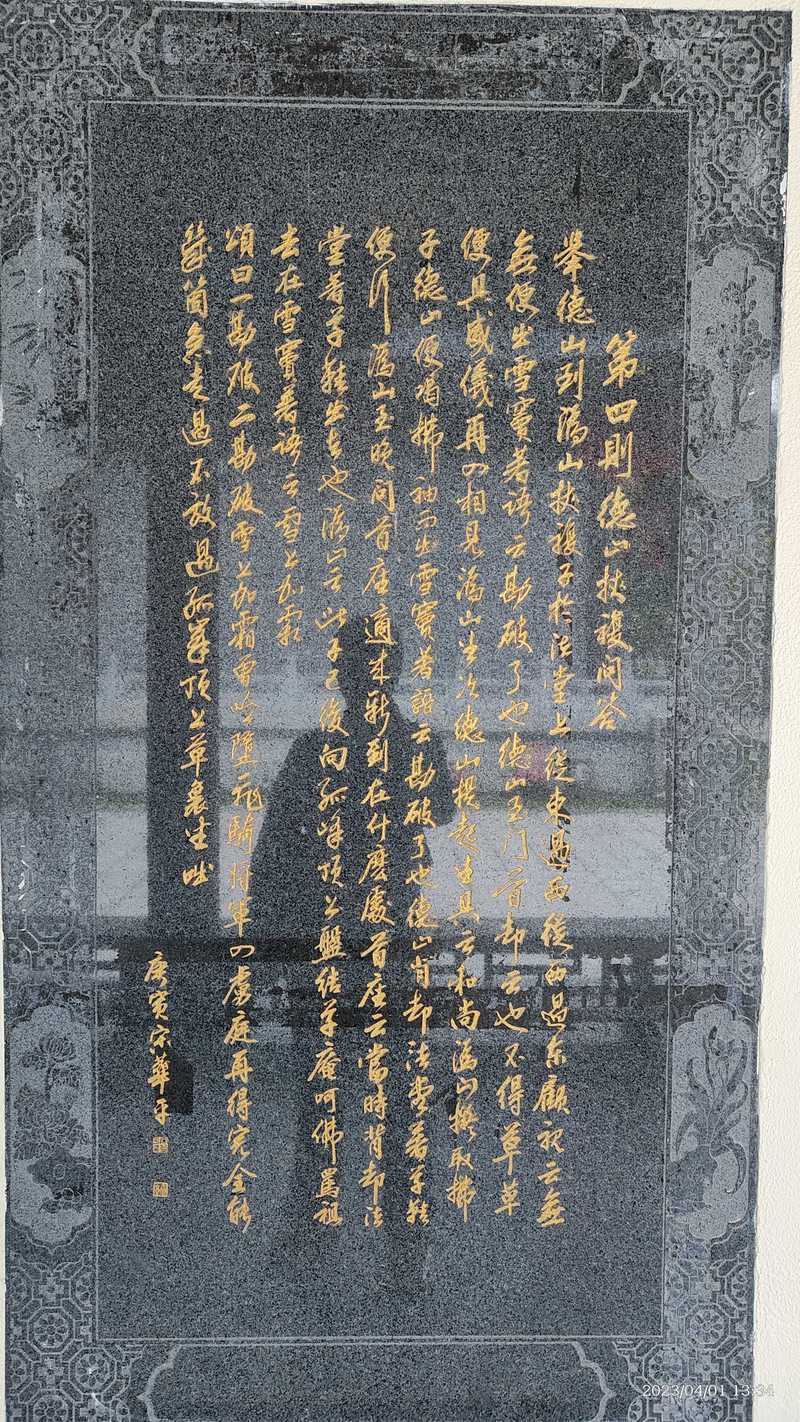 第四則德山挾複問答
舉德山到溈山挾複子於法堂上從東過西從西過東顧視云無
無便出雪竇著語云勘破了也德山至門首却云也不得草草
便具威儀再入相見溈山坐次德山提起坐具云和尚溈山擬取拂
子德山便喝拂袖而出雪竇著語云勘破了也德山背却法堂著草鞋
便行溈山至晚問首座適來新到在什麼處首座云當時背却法
堂著草鞋出去也溈山云此子已後向孤峰頂上盤結草庵呵佛罵祖
去在雪竇著語云雪上加霜
頌曰一勘破二勘破雪上加霜曾險墮飛騎將軍入虜庭再得完全能
幾箇急走過不放過孤峯頂上草裏坐咄
庚寅宋華平
2023/04/01 13:34